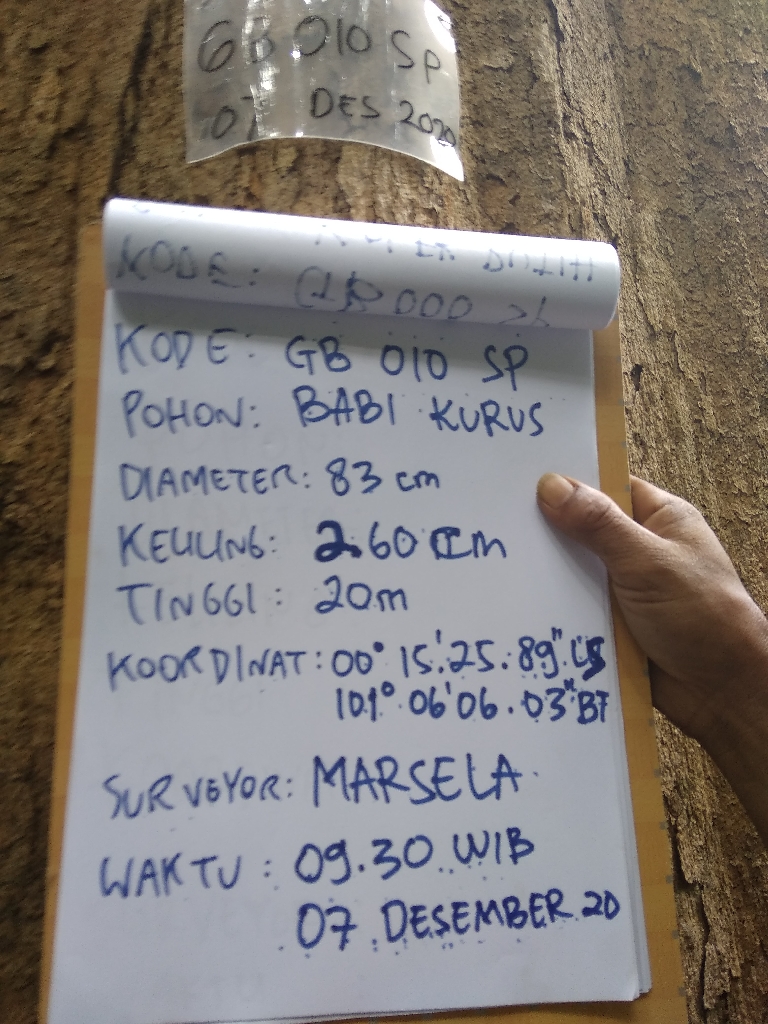 GB 010 SP
07 DES 2020
KODE:
KODE: GB 010 SP
POHON: BABI KURUS
DIAMETER: 83 cm
KELILING: 260 cm
TINGGI: 20m
KOORDINAT: 00° 15' 25. 89" LS
101° 06' 06. 03" BT
SURVEYOR: MARSELA
WAKTU: 09.30 WIB
07 DESEMBER 20